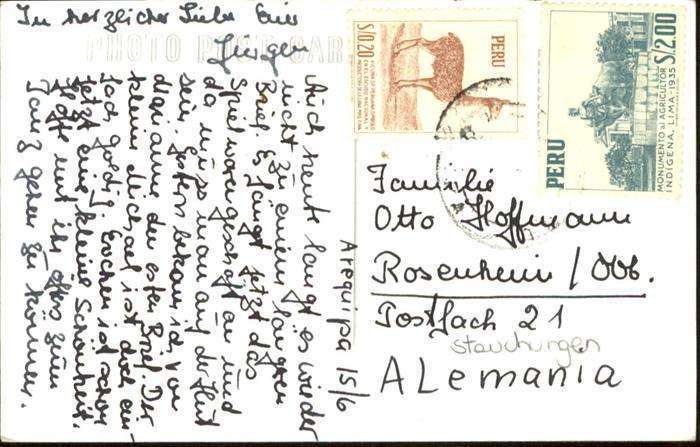 In herzlicher Liebe Euer
Jürgen
PHOTO POST CARD
Arequipa 15/6
Auch heute langt es wieder
nicht zu einem langen
Brief. Es fängt jetzt das
Spielwarengeschäft an und
da muss man auf der Hut
sein. Gestern bekam ich von
Marianne den ersten Brief. Der
kleine ist doch ein
goldig. ist schon
jetzt eine kleine Schönheit.
Hoffe mit ihr öfters zum
Tanz gehen zu können.
S/o.20
PERU
S/2.00
PERU
MONUMENTO al AGRICULTOR
INDIGENA, LIMA-1935
Familie
Otto Hoffmann
Rosenheim / Obb.
Postfach 21
stauchungen
ALemania